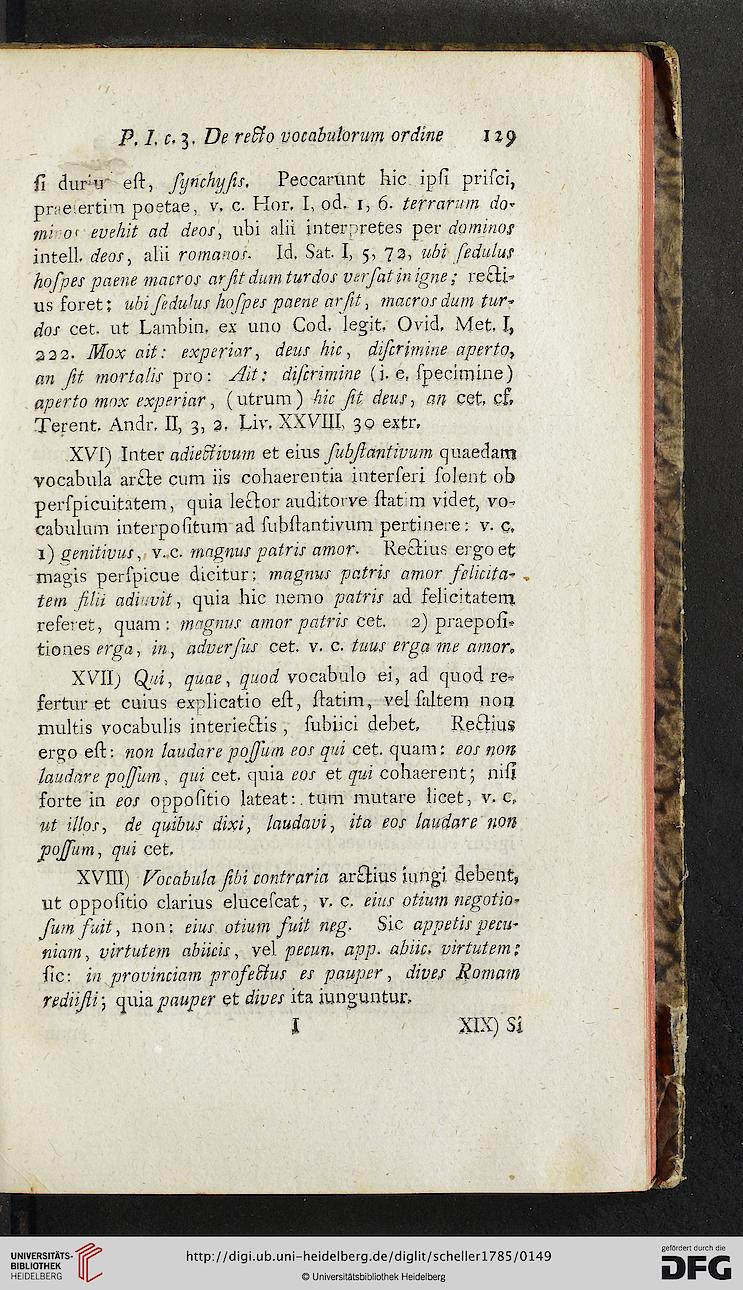 P. I. c. 3. De recto vocabulorum ordine 129
ſi duriu eſt, ſynchyſis. Peccarunt hic ipſi priſci,
praeſertim poetae, v. c. Hor. I, od. 1, 6. terrarum do-
minos evehit ad deos, ubi alii interpretes per dominos
intell. deos, alii romanos. Id. Sat. I, 5, 72, ubi ſedulus
hoſpes paene macros arſit dum turdos verſat in igne; recti-
us foret: ubi ſedulus hoſpes paene arſit, macros dum tur-
dos cet. ut Lambin. ex uno Cod. legit. Ovid. Met. I,
222. Mox ait: experiar, deus hic, diſcrimine aperto,
an ſit mortalis pro: Ait: diſcrimine (i. e. ſpecimine)
aperto mox experiar, (utrum) hic ſit deus, an cet. cf.
Terent. Andr. II, 3, 2. Liv. XXVIII, 30 extr.
XVI) Inter adiectivum et eius ſubſtantivum quaedam
vocabula arcte cum iis cohaerentia interſeri ſolent ob
perſpicuitatem, quia lector auditorve ſtatim videt, vo-
cabulum interpoſitum ad ſubſtantivum pertinere: v. c.
1) genitivus, v. c. magnus patris amor. Rectius ergo et
magis perſpicue dicitur: magnus patris amor felicita-
tem filii adiuvit, quia hic nemo patris ad felicitatem
referet, quam: magnus amor patris cet. 2) praepoſi-
tiones erga, in, adverſus cet. v. c. tuus erga me amor.
XVII) Qui, quae, quod vocabulo ei, ad quod re-
fertur et cuius explicatio eſt, ſtatim, vel ſaltem non
multis vocabulis interiectis, ſubiici debet. Rectius
ergo eſt: non laudare poſſum eos qui cet. quam: eos non
laudare poſſum, qui cet. quia eos et qui cohaerent; niſi
forte in eos oppoſitio lateat: tum mutare licet, v. c.
ut illos, de quibus dixi, laudavi, ita eos laudare non
poſſum, qui cet.
XVIII) Vocabula ſibi contraria arctius iungi debent,
ut oppoſitio clarius eluceſcat, v. c. eius otium negotio-
ſum fuit, non: eius otium fuit neg. Sic appetis pecu-
niam, virtutem abiicis, vel pecun. app. abiic. virtutem;
ſic: in provinciam profectus es pauper, dives Romam
rediiſti; quia pauper et dives ita iunguntur.
I XIX) Si
UNIVERSITÄTS-
BIBLIOTHEK
HEIDELBERG
http://digi.ub.uni-heidelberg.de/diglit/scheller1785/0149
© Universitätsbibliothek Heidelberg
gefördert durch die
DFG